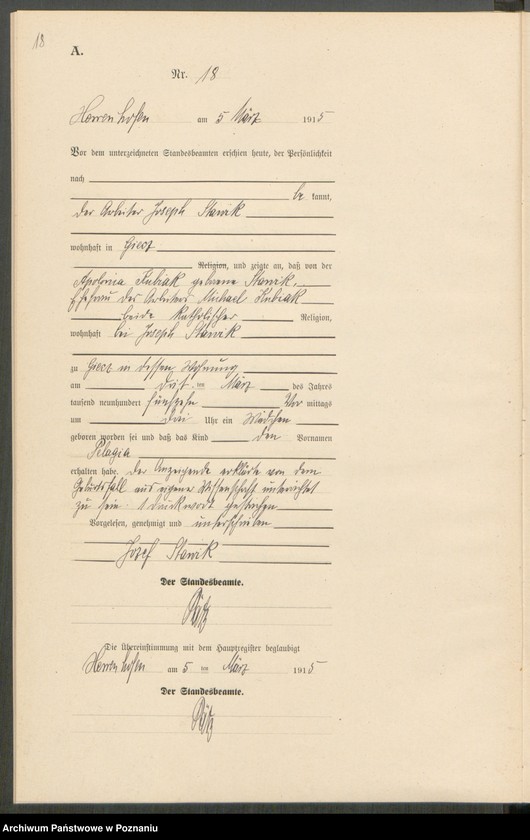 18
A.
Nr. 18
Herrenhofen am 5 März 1915
Vor dem unterzeichneten Standesbeamten erschien heute, der Persönlichkeit
nach
be kannt,
der Arbeiter Joseph Stawik
wohnhaft in Giecz
Religion, und zeigte an, daß von der
Apolonia Kubiak geborene Stawik,
Ehefrau des Arbeiters Michael Kubiak
beide katholischer Religion,
wohnhaft bei Joseph Stawik
zu Giecz in dessen Wohnung
am drit ten März des Jahres
tausend neunhundert fünfzehn Vor mittags
um drei Uhr ein Mädchen
geboren worden sei und daß das Kind den Vornamen
Pelagia
erhalten habe. Der Anzeigende erklärte von dem
Geburtsfall aus eigener Wissenschaft unterrichtet
zu sein. 1 Druckwort gestrichen.
Vorgelesen, genehmigt und unterschrieben
Józef Stawik
Der Standesbeamte.
Die Übereinstimmung mit dem Hauptregister beglaubigt
Herrenhofen am 5 ten März 1915
Der Standesbeamte.
Archiwum Państwowe w Poznaniu